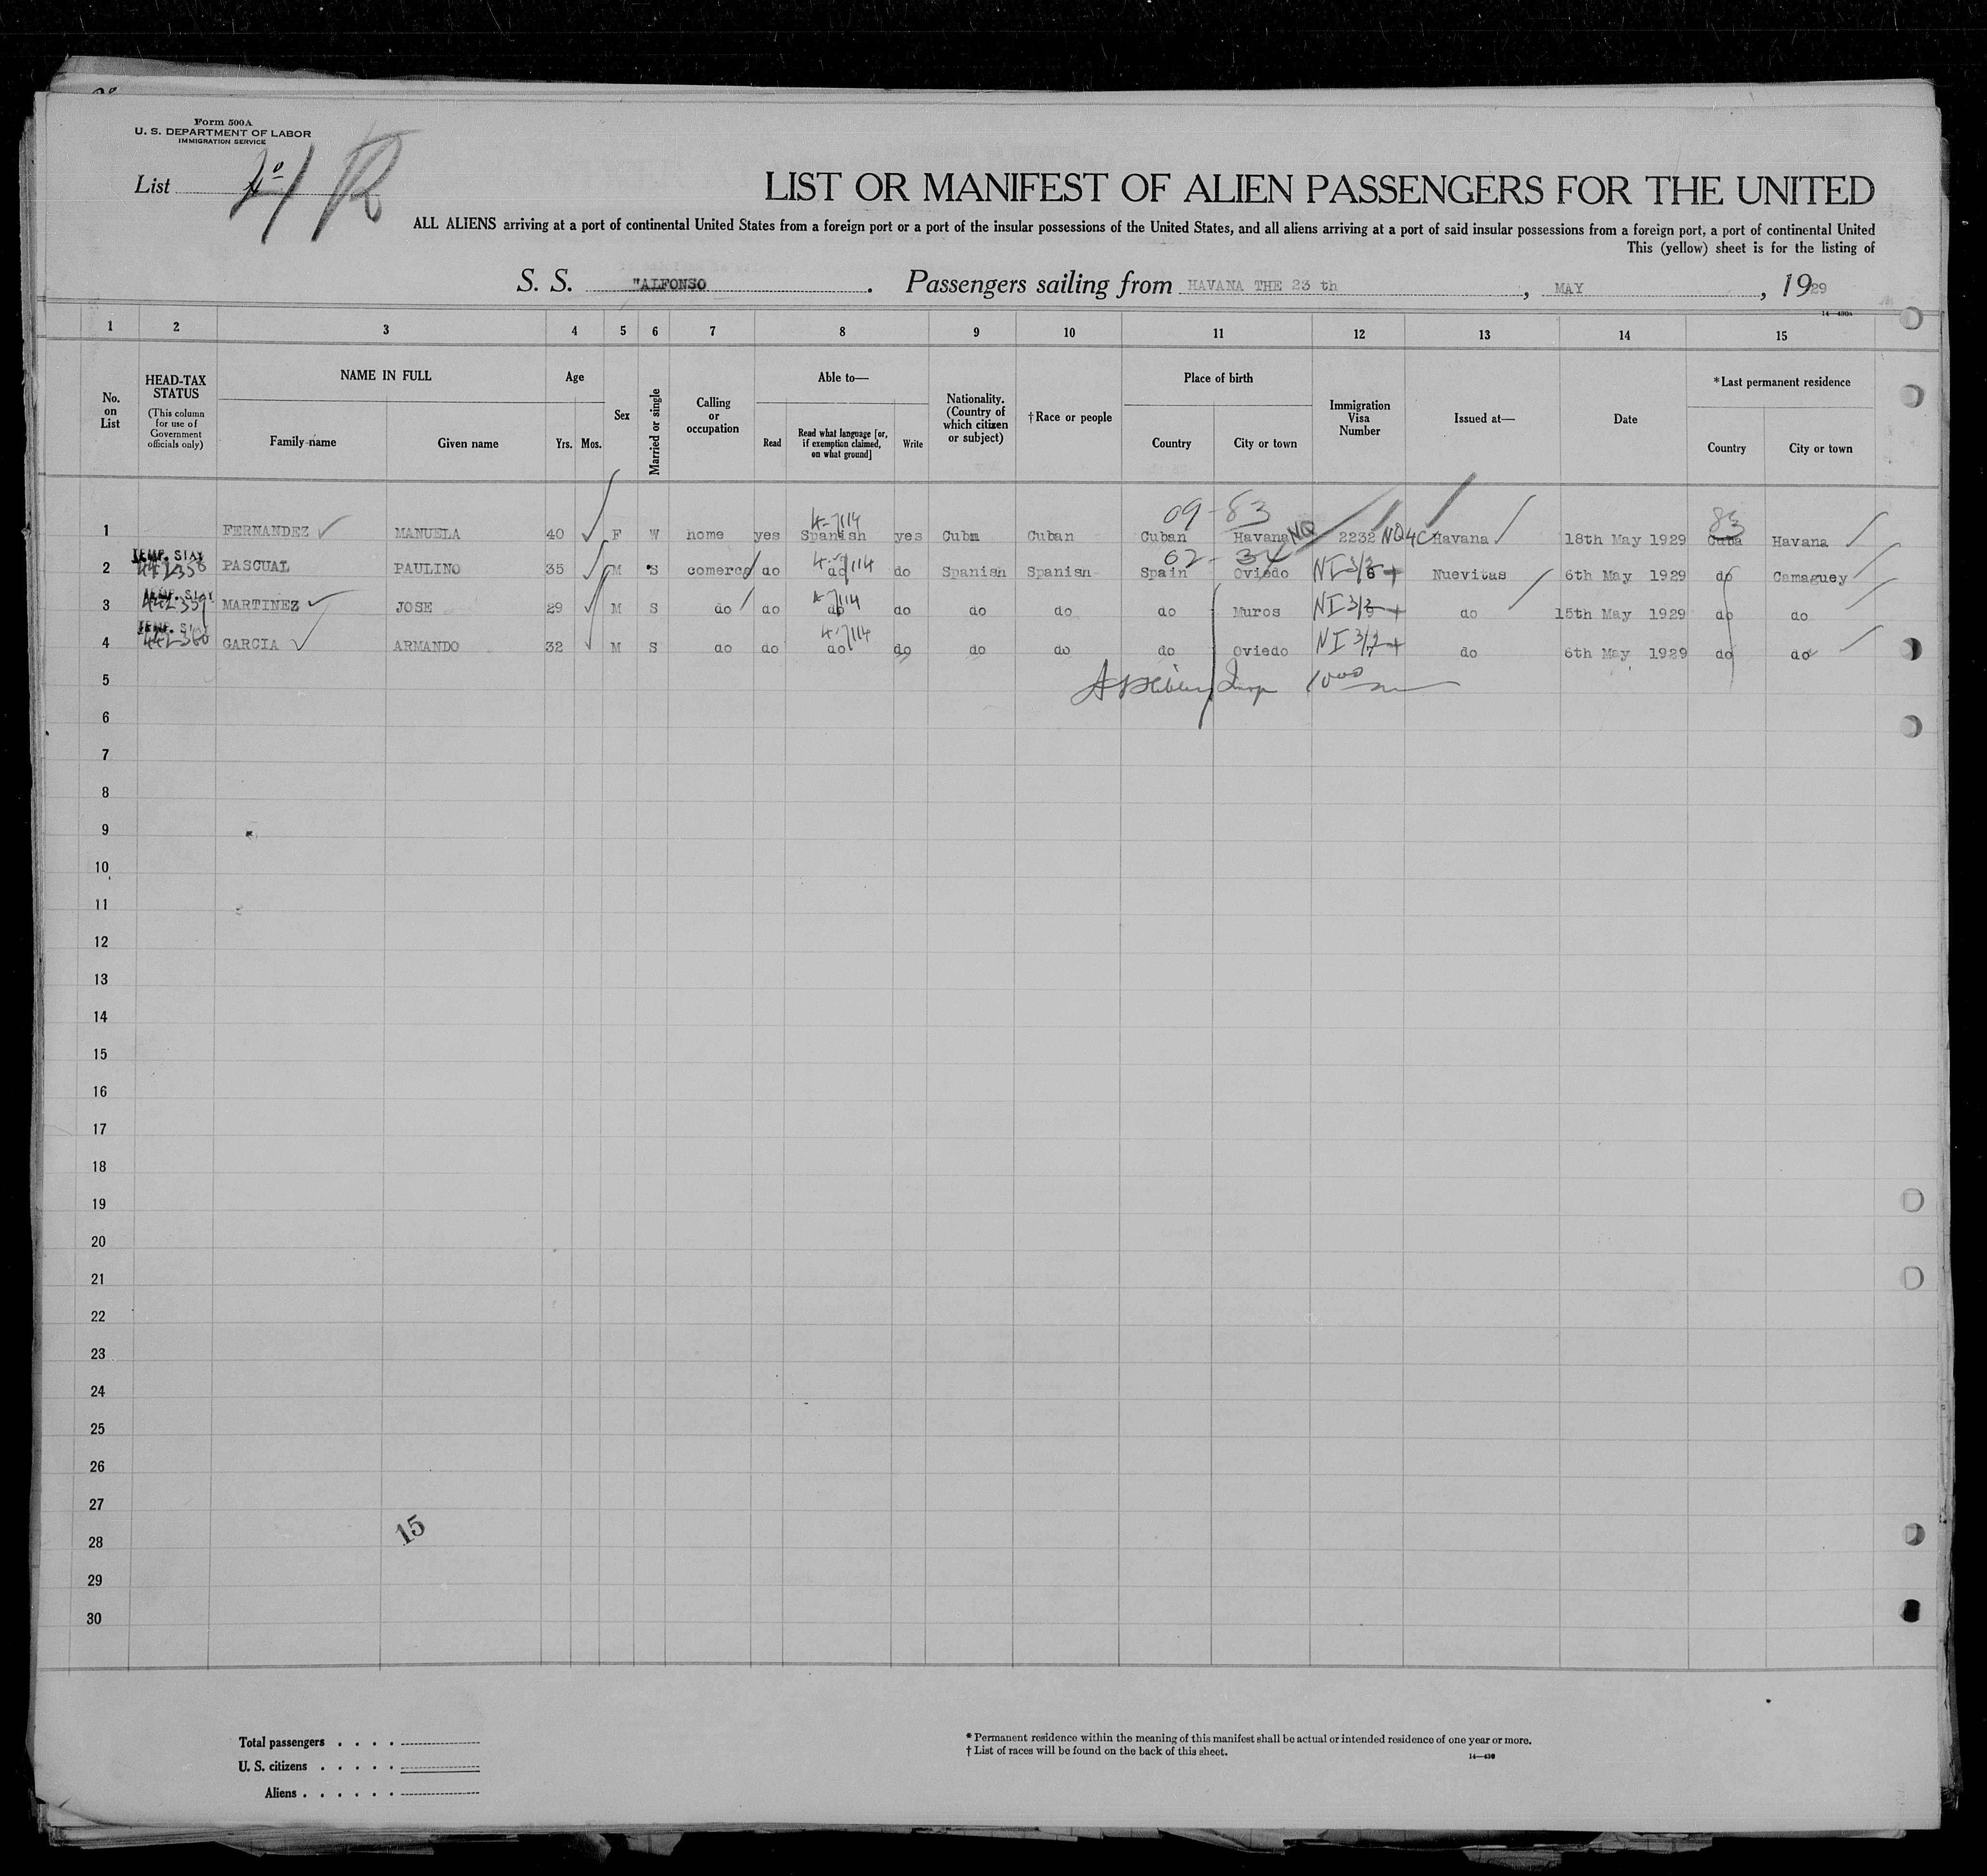 Form 500A
U. S. DEPARTMENT OF LABOR
IMMIGRATION SERVICE
List
LIST OR MANIFEST OF ALIEN PASSENGERS FOR THE UNITED
ALL ALIENS arriving at a port of continental United States from a foreign port or a port of the insular possessions of the United States, and all aliens arriving at a port of said insular possessions from a foreign port, a port of continental United
This (yellow) sheet is for the listing of
S. S. "ALFONSO . Passengers sailing from HAVANA THE 23 th , MAY , 1929
14—430a
1 2 3 4 5 6 7 8 9 10 11 12 13 14 15
No. on List
HEAD-TAX STATUS (This column for use of Government officials only)
NAME IN FULL
Family name Given name
Age
Yrs. Mos.
Sex
Married or single
Calling or occupation
Able to—
Read Read what language [or, if exemption claimed, on what ground] Write
Nationality. (Country of which citizen or subject)
†Race or people
Place of birth
Country City or town
Immigration Visa Number
Issued at—
Date
*Last permanent residence
Country City or town
4-7/14 09-83 83
1 FERNANDEZ MANUELA 40 F W home yes Spanish yes Cuba Cuban Cuban Havana NQ 2232 NQ4C Havana 18th May 1929 Cuba Havana
TEMP. STAY 62-34
2 442358 PASCUAL PAULINO 35 M S comerco do do do Spanish Spanish Spain Oviedo NI 3/2 Nuevitas 6th May 1929 do Camaguey
TEMP. STAY 4-7/14
3 442359 MARTINEZ JOSE 29 M S do do do do do do do Muros NI 3/2 do 15th May 1929 do do
TEMP. STAY 4-7/14
4 442360 GARCIA ARMANDO 32 M S do do do do do do do Oviedo NI 3/2 do 6th May 1929 do do
5
6
7
8
9
10
11
12
13
14
15
16
17
18
19
20
21
22
23
24
25
26
27
15
28
29
30
Total passengers . . . .
U. S. citizens . . . . .
Aliens . . . . . .
* Permanent residence within the meaning of this manifest shall be actual or intended residence of one year or more.
† List of races will be found on the back of this sheet.
14—430